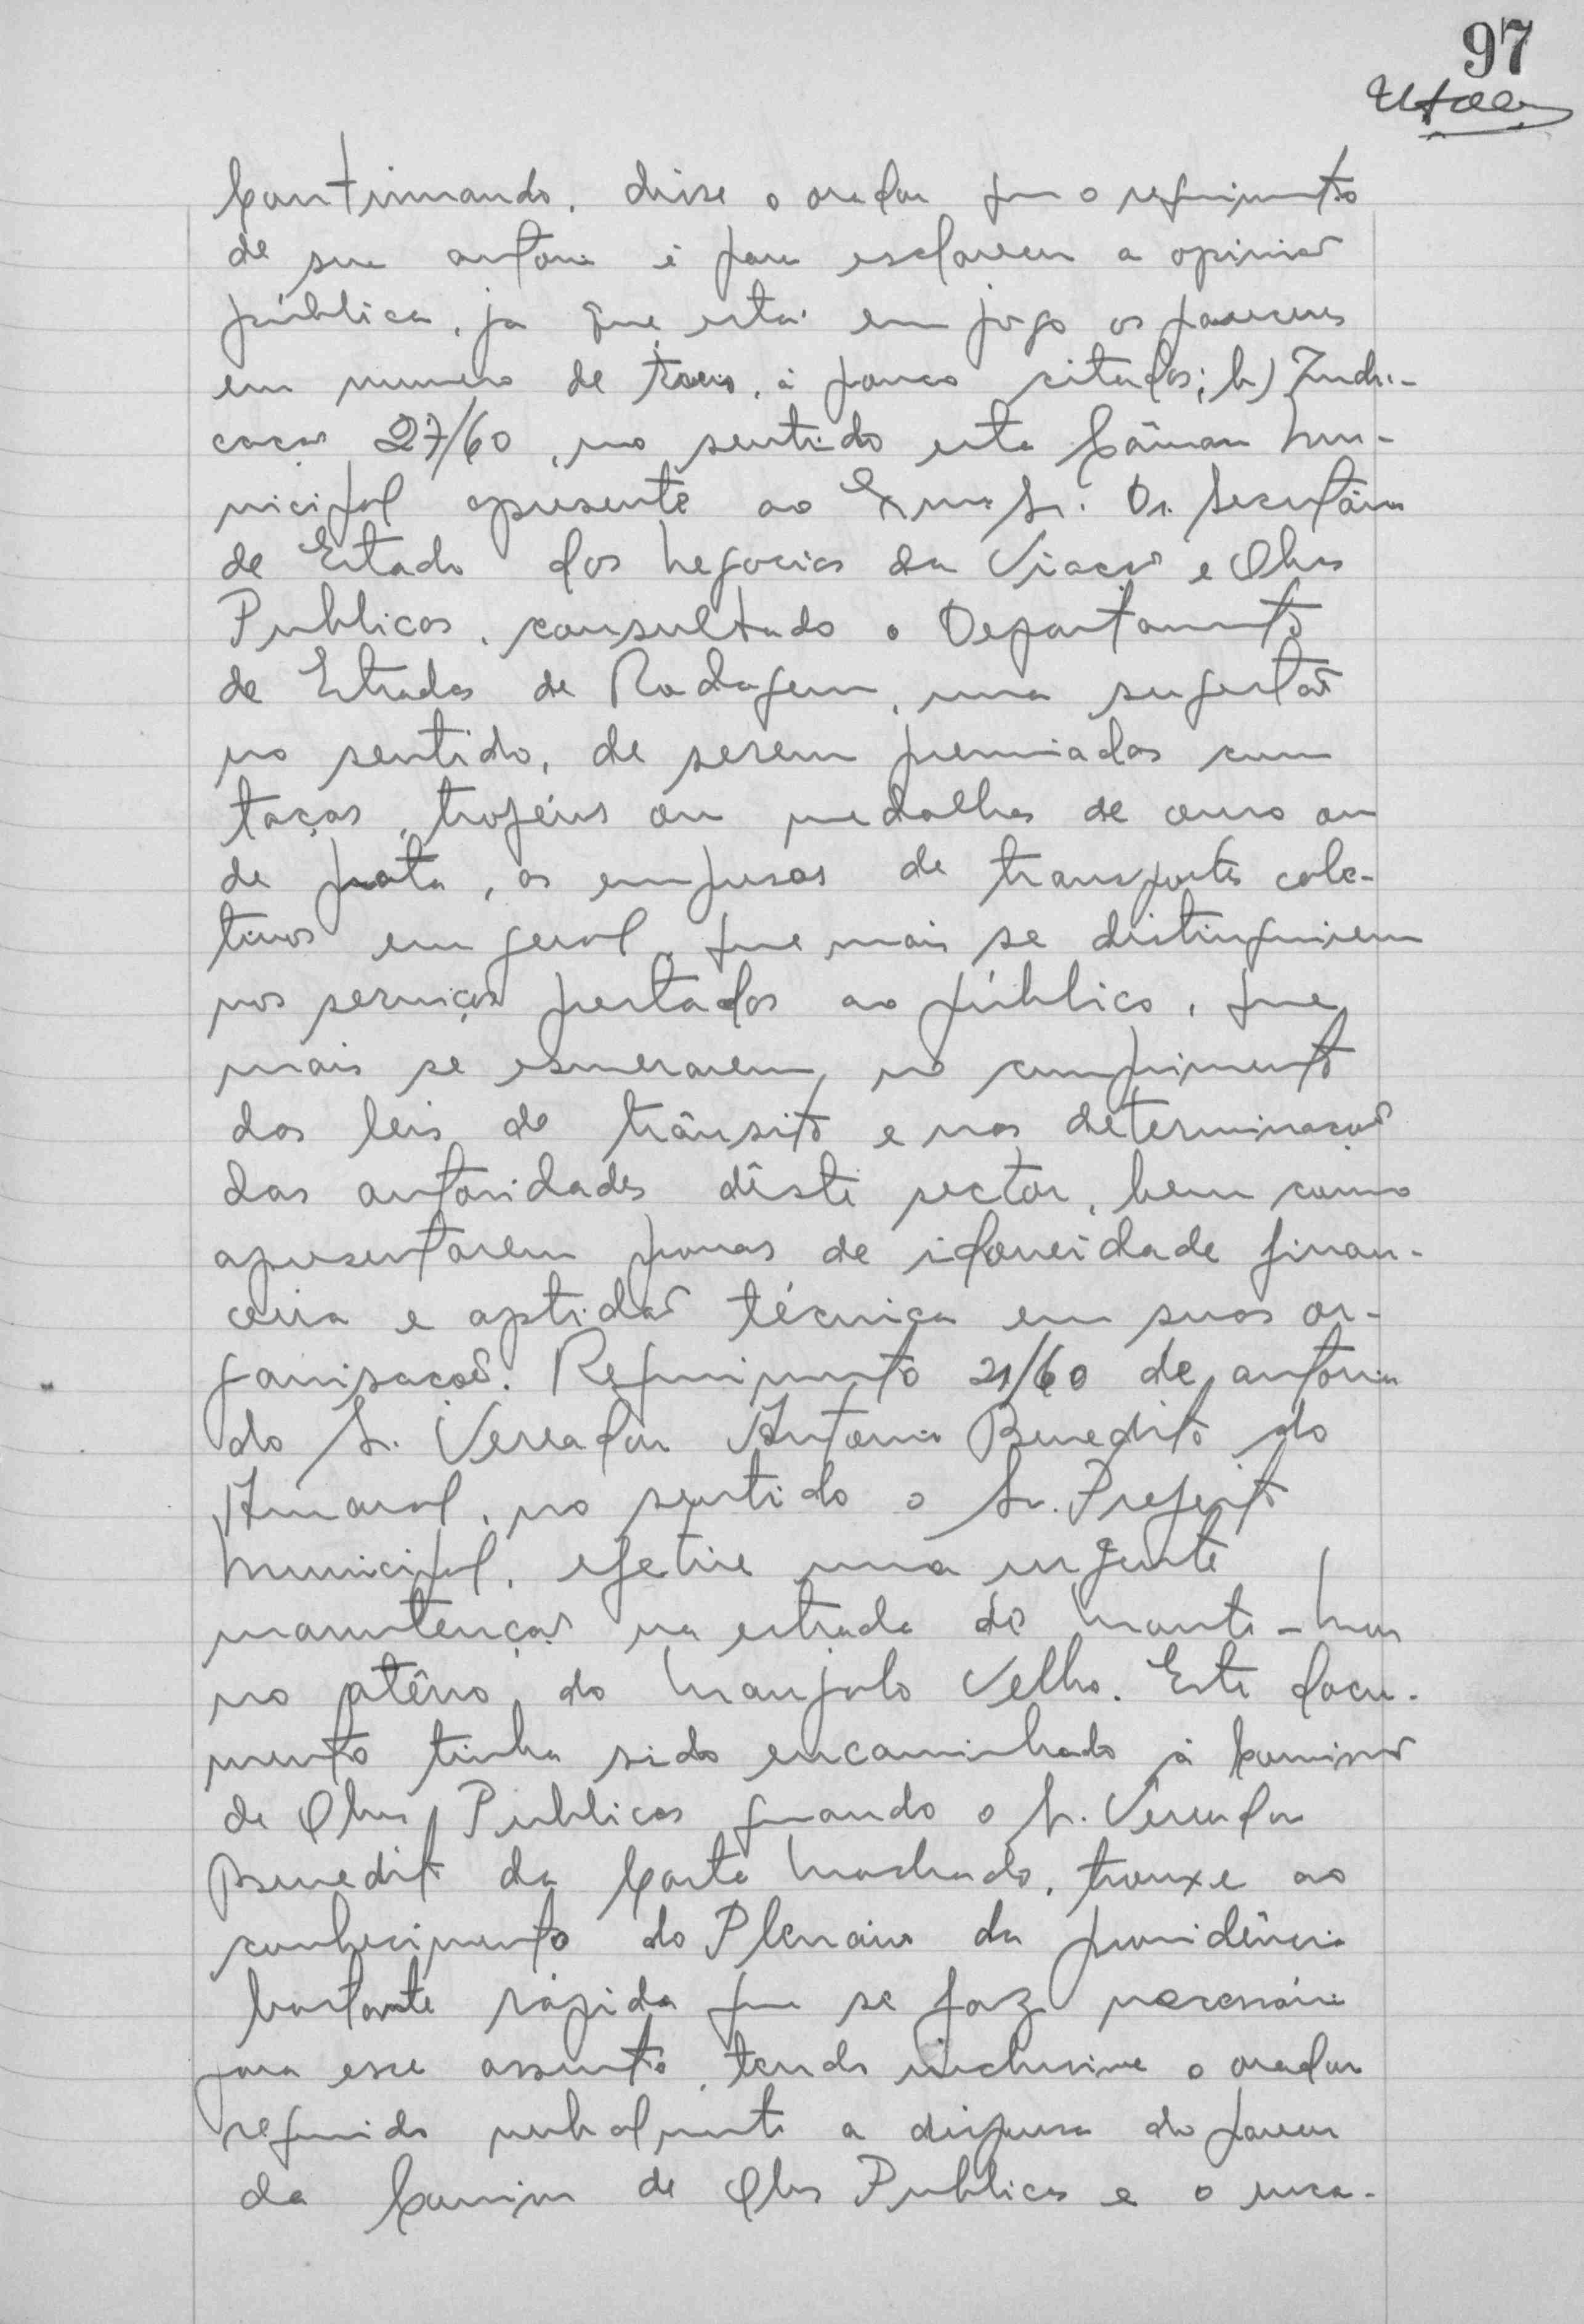 97
Continuando, disse o orador que o requerimento
de sua autoria é para esclarecer a opinião
pública, ja que está em jogo os pareceres
em numero de tres, à pouco citados; b) Indi-
cação 27/60, no sentido esta Câmara Mu-
nicipal apresente ao Exmo Sr. Dr. Secretário
de Estado dos Negocios da Viação e Obras
Publicas, consultado o Departamento
de Estradas de Rodagem, uma sugestão
no sentido, de serem premiadas com
taças, troféus ou medalhas de ouro ou
de prata, as empresas de transportes cole-
tivos em geral, que mais se distinguirem
nos serviços prestados ao público, que
mais se esmerarem, no cumprimento
das leis de trânsito e nas determinações
das autoridades dêste sector, bem como
apresentarem provas de idoneidade finan-
ceira e aptidão técnica em suas or-
ganisações. Requerimento 21/60 de autoria
do Sr. Vereador Antonio Benedito do
Amaral, no sentido o Sr. Prefeito
Municipal, efetive uma urgente
manutenção na estrada do Monte-Mor
no atêrro do Manjolo Velho. Este docu-
mento tinha sido encaminhado à Comissão
de Obras Publicas quando o Sr. Vereador
Benedito da Costa Machado, trouxe ao
conhecimento do Plenario da providência
bastante rápida que se faz necessária
para esse assunto, tendo inclusive o orador
requerido verbalmente a dispensa do parecer
da Comissão de Obras Publicas e o enca-